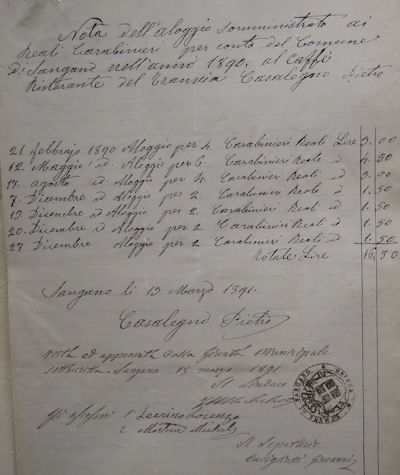 Nota dell'aloggio somministrato ai
Reali Carabinieri per conto del Comune
di Sangano nell'anno 1890. al Caffè
Ristorante del Tranvia Casalegno Pietro
21 febbraio 1890 Aloggio per 4 Carabinieri Reali Lire 3.00
12. Maggio id. Aloggio per 6. Carabinieri Reale id 4.50
17. agosto id Aloggio per 4. Carabinieri Reali id 3.00
7. Dicembre id Aloggio per 2. Carabinieri Reali id 1.50
19 Dicembre id Aloggio per 2. Carabinieri Reali id 1.50
20. Dicembre id Aloggio per 2. Carabinieri Reali id 1.50
27 Dicembre Aloggio per 2 Carabinieri Reali id 1.50
Totale Lire 16.50
Sangano li 12. Marzo 1891.
Casalegno Pietro
Vista ed approvata dalla Giunta Municipale
Sangano 15 marzo 1891
Il Sindaco
Gli assessori 1° Lorenzo
2 Martin Michele
Il Segretario
Giovanni